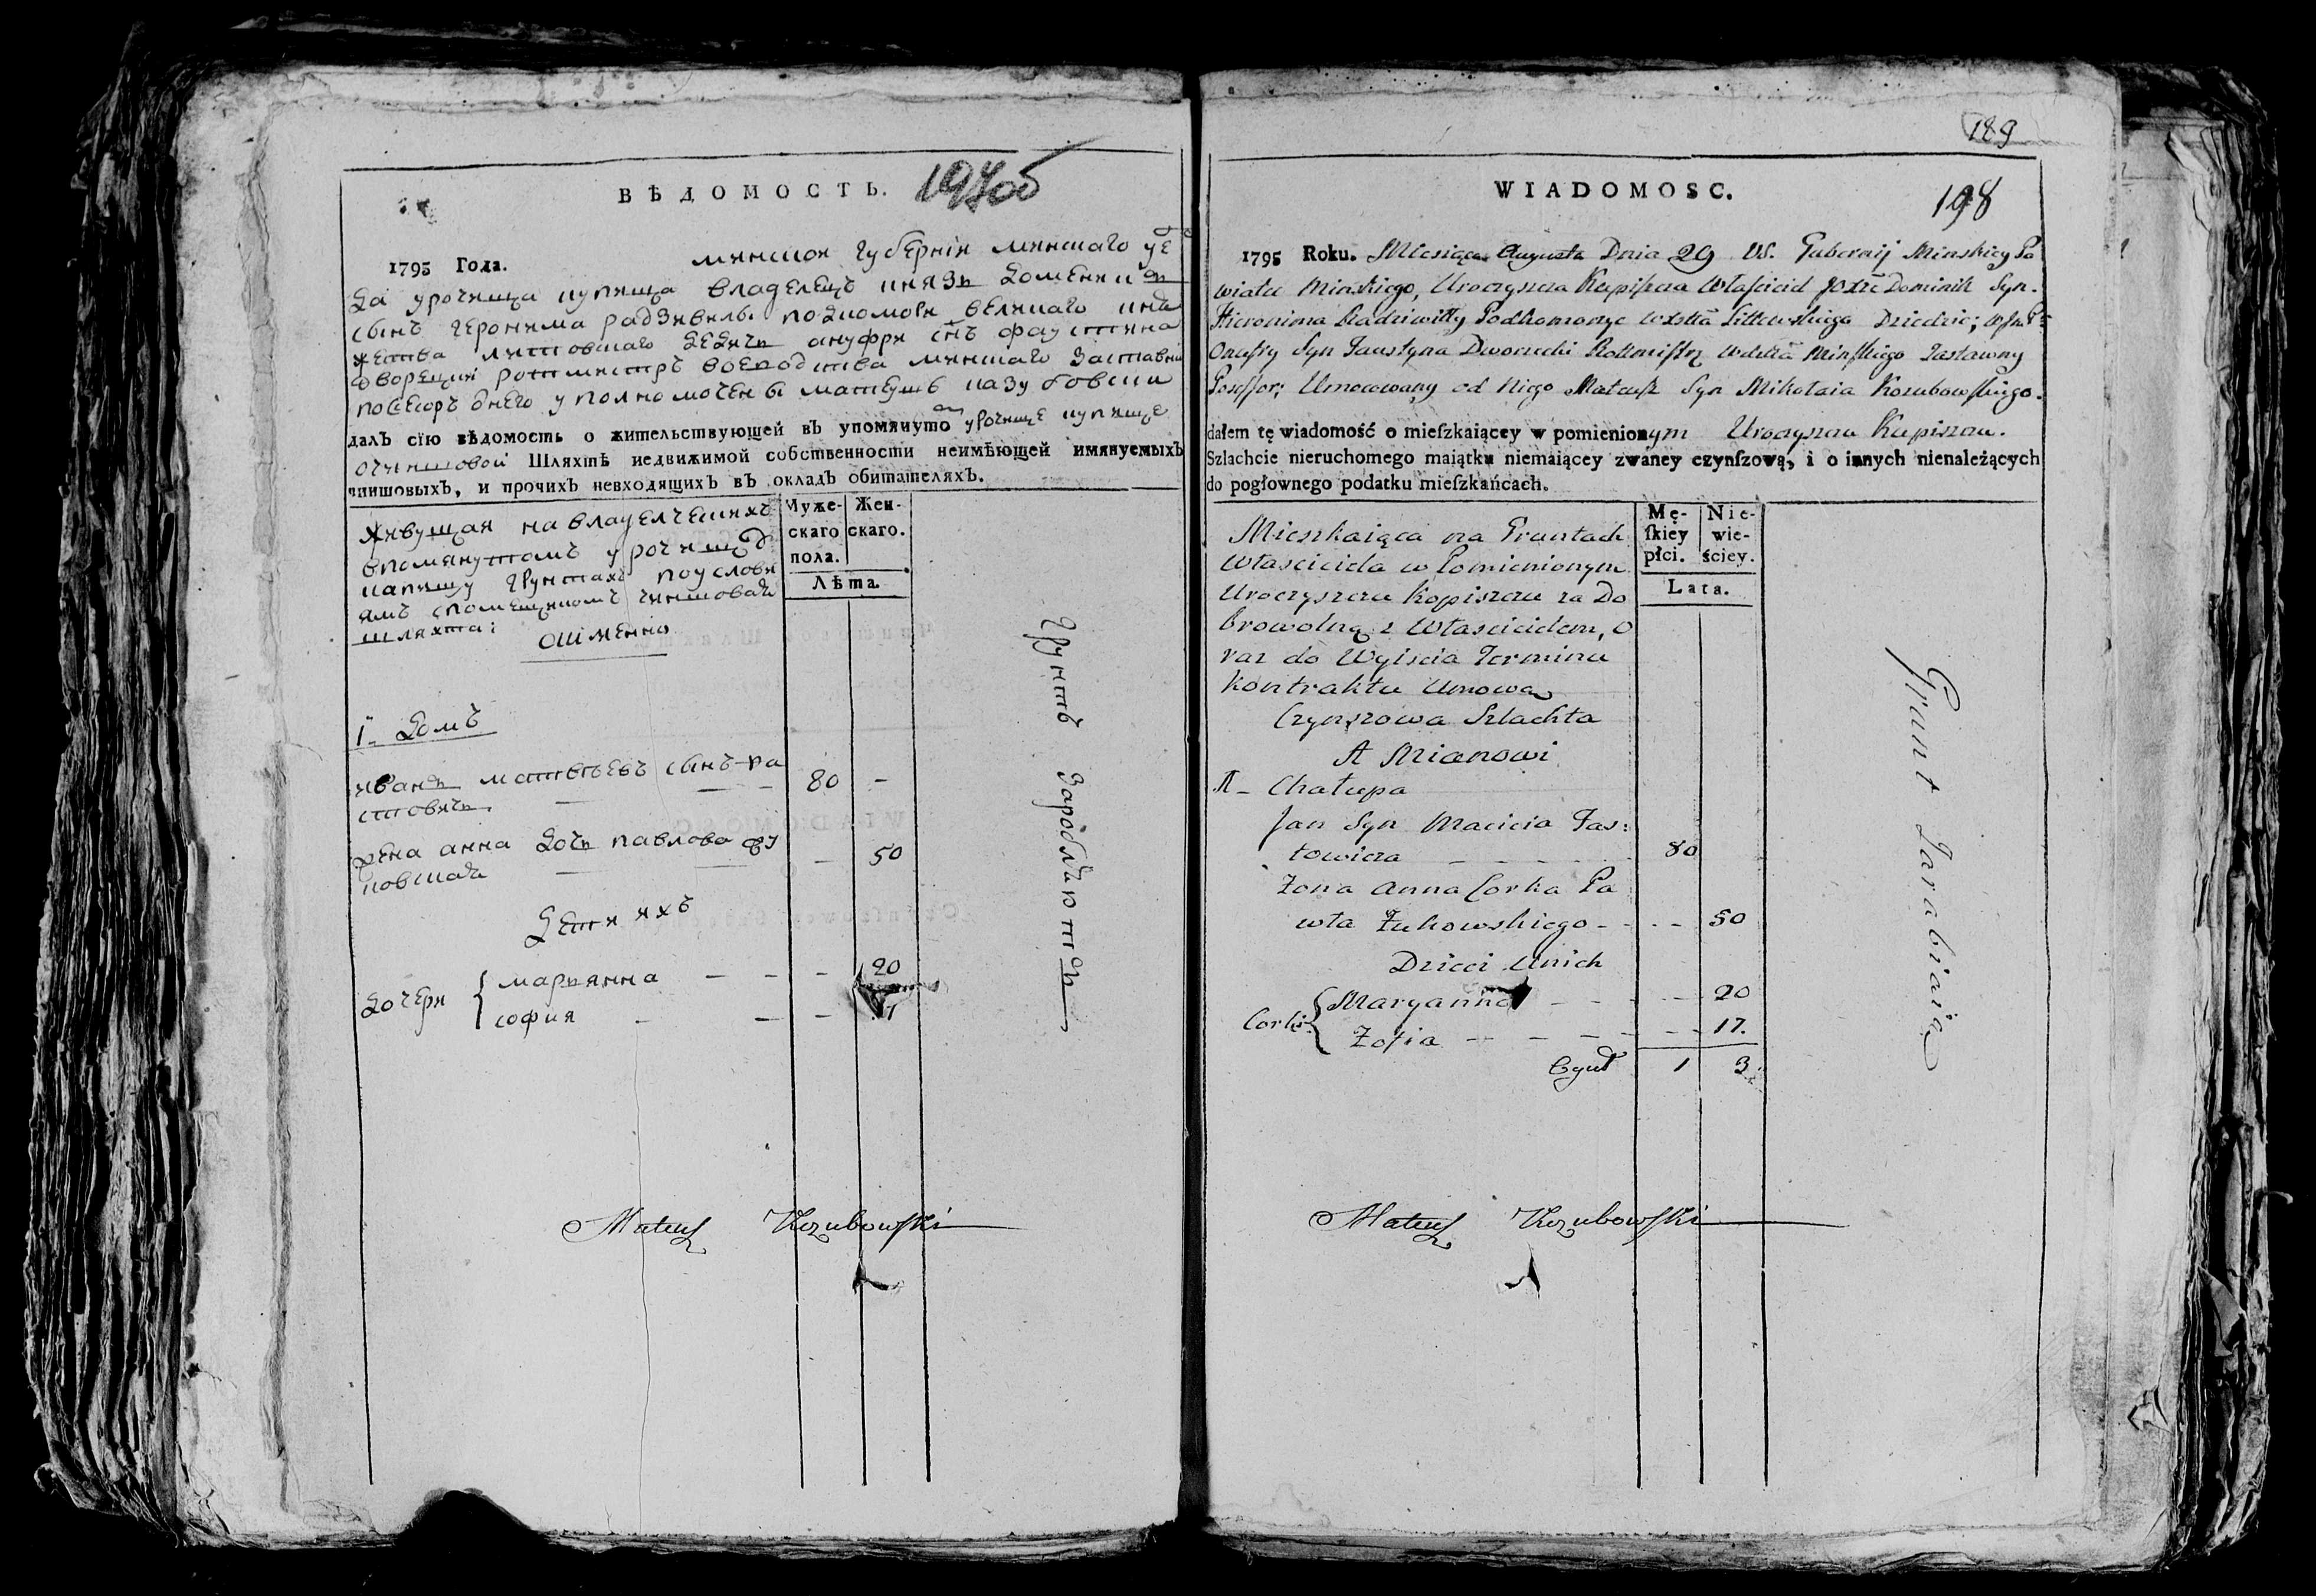 ВѢДОМОСТЬ. 197об
1795 Года. минской губернїи минскаго уѣз
да урочища купища владелецъ князь доминикъ
сынъ геронима радзивилъ подкоморїи великаго кня
жества литовскаго дедичъ ануфри снъ фаустина
дворецки ротмистръ воеводства минскаго заставни
посесоръ отнего уполномочены матеушъ козубовски
далъ сїю вѣдомость о жительствующей въ упомянутомъ урочище купище
очиншовой Шляхтѣ недвижимой собственности неимѣющей имянуемыхъ
чиншовыхъ, и прочихъ невходящихъ въ окладъ обитателяхъ.
живущая на владелческихъ
впомянутомъ урочищѣ
капищу грунтахъ поуслови
ямъ спомещикомъ чиншовая
шляхта:
аимѣнно
Муже- Жен-
скаго скаго.
пола.
Лѣта.
1. домъ
иванъ матвѣевъ сынъ 80 -
стовичъ
жена анна дочь павлова жу - 50
ковская
детиихъ
дочери { марьянна - - - 20
софия - - - 17
грунтъ зароблѣютъ
Mateusz Kozubowski
189
WIADOMOSC. 198
1795 Roku. Miesiąca Augusta Dnia 29 VS. Gubernij Minskiey Po
wiatu Minskiego, Uroczyszcza Kupiszcza Własciciel JOXże Dominik Syn
Hieronima Radziwiłły Podkomorzyc WXsttã Littewskiego Dziedzic; WJmP
Onufry Syn Faustyna Dworzecki Rotmistrz wdztã Minskiego Zastawny
Possessor; Umocowany od Niego Mateusz Syn Mikołaia Kozubowskiego.
dałem tę wiadomość o mieszkaiącey w pomienionym Uroczyszczu Kupiszczu.
Szlachcie nieruchomego maiątku niemaiącey zwaney czynszową, i o innych nienależących
do pogłownego podatku mieszkańcach.
Mieszkaiąca na Gruntach
Własciciela w Pomienionym
Uroczyszczu Kopiszczu za Do
browolną z Własicicielem, o
raz do Wyiscia Terminu
Kontraktu Umową
Czynszowa Szlachta
A Mianowi
Mę- Nie-
skiey wie-
płci. ściey.
Lata.
1 - Chałupa
Jan Syn Macieia Fas:
towicza - - - - 80
Zona Anna Corka Pa
wła Żukowskiego - - - - 50
Dzieci Unich
Corki { Maryanna - - - - 20
Zofia - - - - - 17.
Oguł 1 3
Grunt Zarabiaią
Mateusz Kozubowski